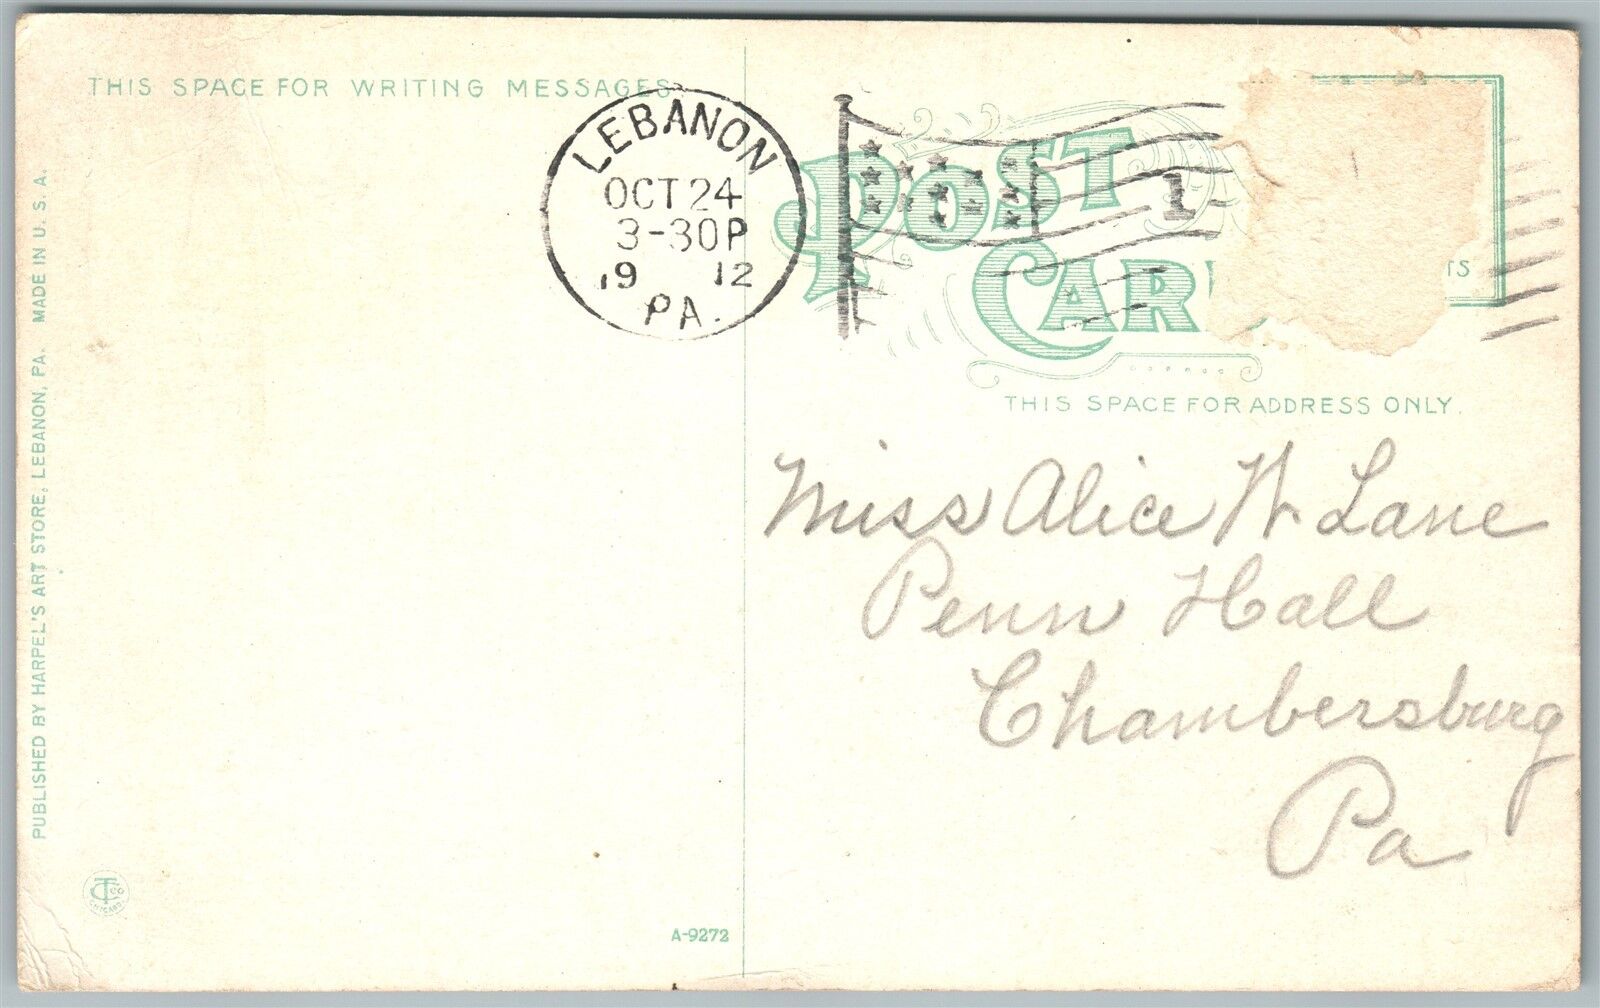 THIS SPACE FOR WRITING MESSAGES.
LEBANON
OCT 24
3-30P
19 12
PA.
POST
CAR
1
TS
THIS SPACE FOR ADDRESS ONLY.
Miss Alice W. Lane
Penn Hall
Chambersburg
Pa
PUBLISHED BY HARPEL'S ART STORE, LEBANON, PA. MADE IN U. S. A.
CT CO
CHICAGO
A-9272